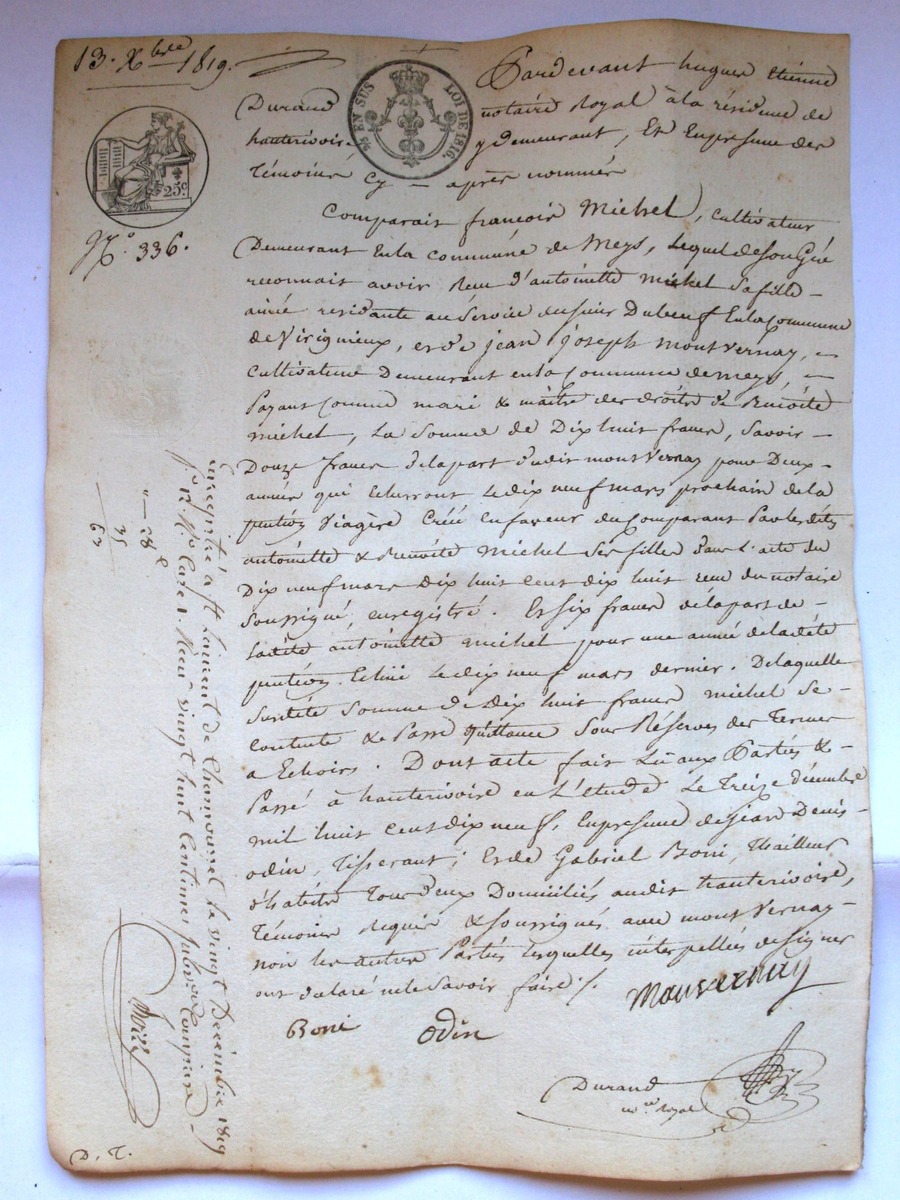 13. Xbre 1819.
EN SUS LOI DE 1816.
25c
No. 336.
Pardevant hugues Etienne
Durand notaire Royal à la résidence de
hauterivoire y demeurant, Et En presence des
Témoins Cy - après nommés
Comparait françois Michel, cultivateur
Demeurant en la commune de Meys, Lequel de Son Gré
reconnait avoir Recu d'antoinette michel Sa fille -
ainée residante au Service du Sieur Dubeuf En la Commune
de Virigneux, et de jean joseph montvernay, -
cultivateur Demeurant en la Commune de meys, -
Payant comme mari & maître des droits de Benoite
michel, La Somme de Dix huit francs, Savoir -
Douze francs de la part dudit montvernay pour Deux -
années qui Echerront Le dix neuf mars prochain de la
pention Viagère Créée en faveur du Comparant Par les dites
antoinette & Benoite Michel Ses filles Dans L'acte du
Dix neuf mars dix huit cent dix huit recu du notaire
Soussigné, enregistré. Et Six francs de la part de -
Ladite antoinette michel pour une année de la dite
pention Echue Le dix neuf mars dernier. De laquelle
Susdite Somme de Dix huit francs michel Se -
Contente & Passe quittance Sous Réserves des Termes
a Echoirs. Dont acte fait Lu aux Parties & -
Passé à hauterivoire en L'étude Le Treize décembre
mil huit cent dix neuf, En presence de Jean Denis -
odin, Tisserant; Et de Gabriel Boni, Thailleur
d'habits Tous deux Domiciliés audit hauterivoire,
Témoins Requis & Soussignés avec montvernay -
non les autres Parties Lesquelles interpellées de signer
ont declaré ne le Savoir faire /.
Mauvernay
Boni
odin
Durand
nre royal
Enregistré a St Laurent de Chamousset le vingt Decembre 1819
Recu vingt huit Centimes
" — 28 c
35
63
D. T.